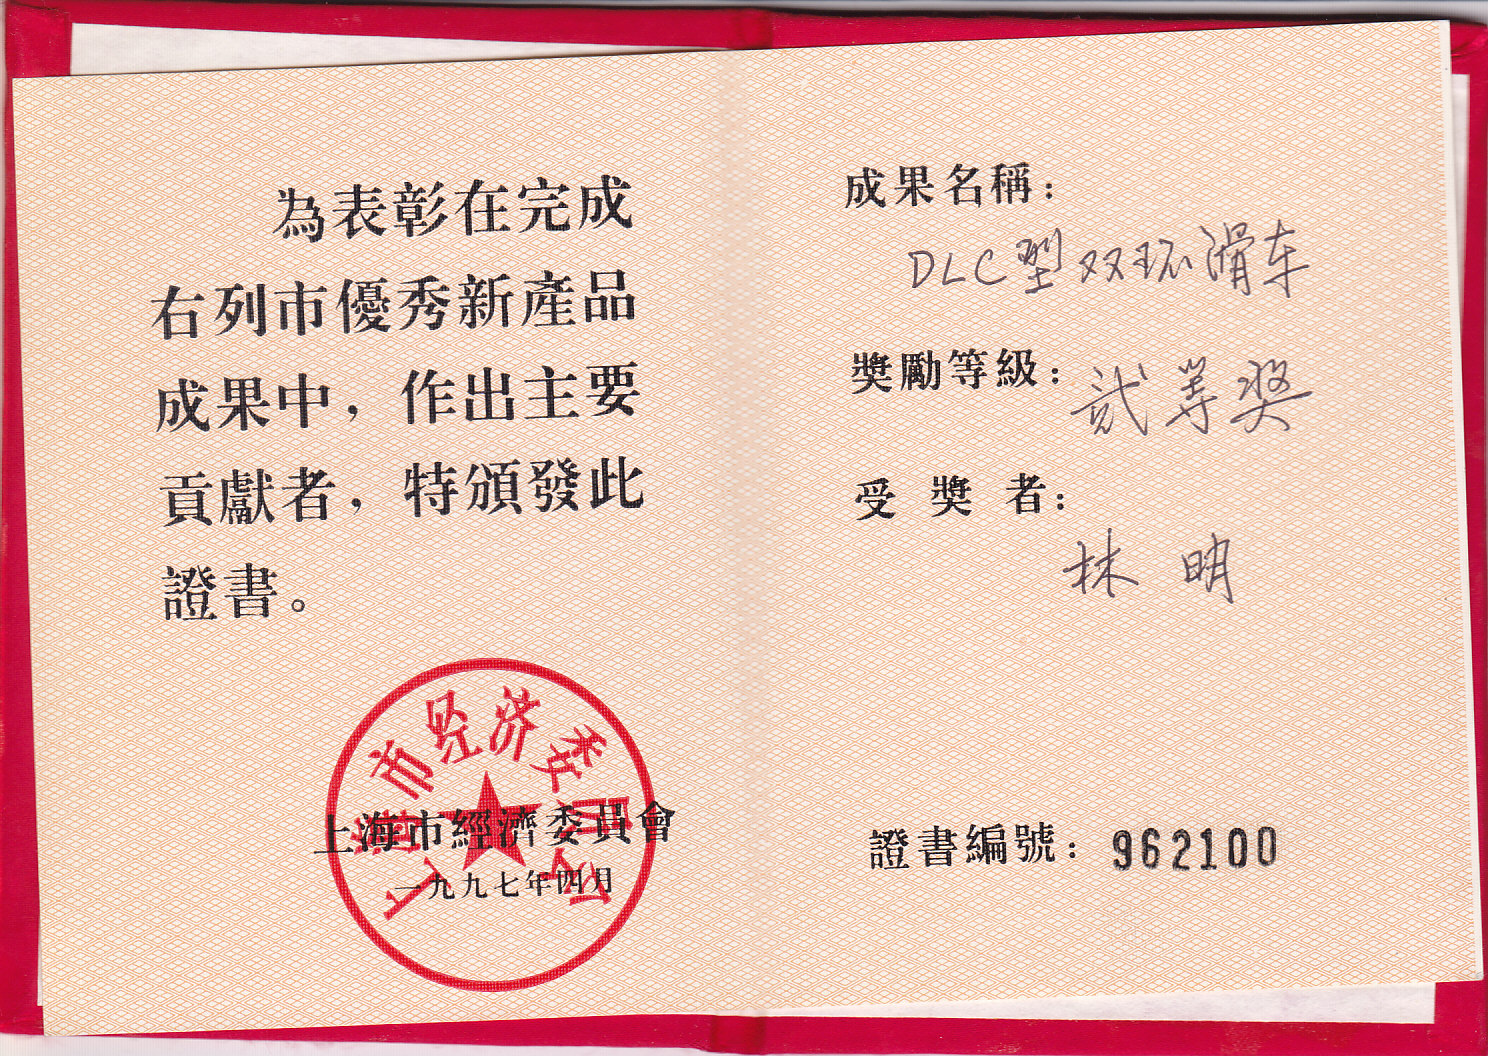 為表彰在完成
右列市優秀新產品
成果中，作出主要
貢獻者，特頒發此
證書。
上海市经济委员会
上海市經濟委員會
一九九七年四月
成果名稱：
DLC型双环滑车
獎勵等級：
贰等奖
受獎者：
林明
證書編號：962100